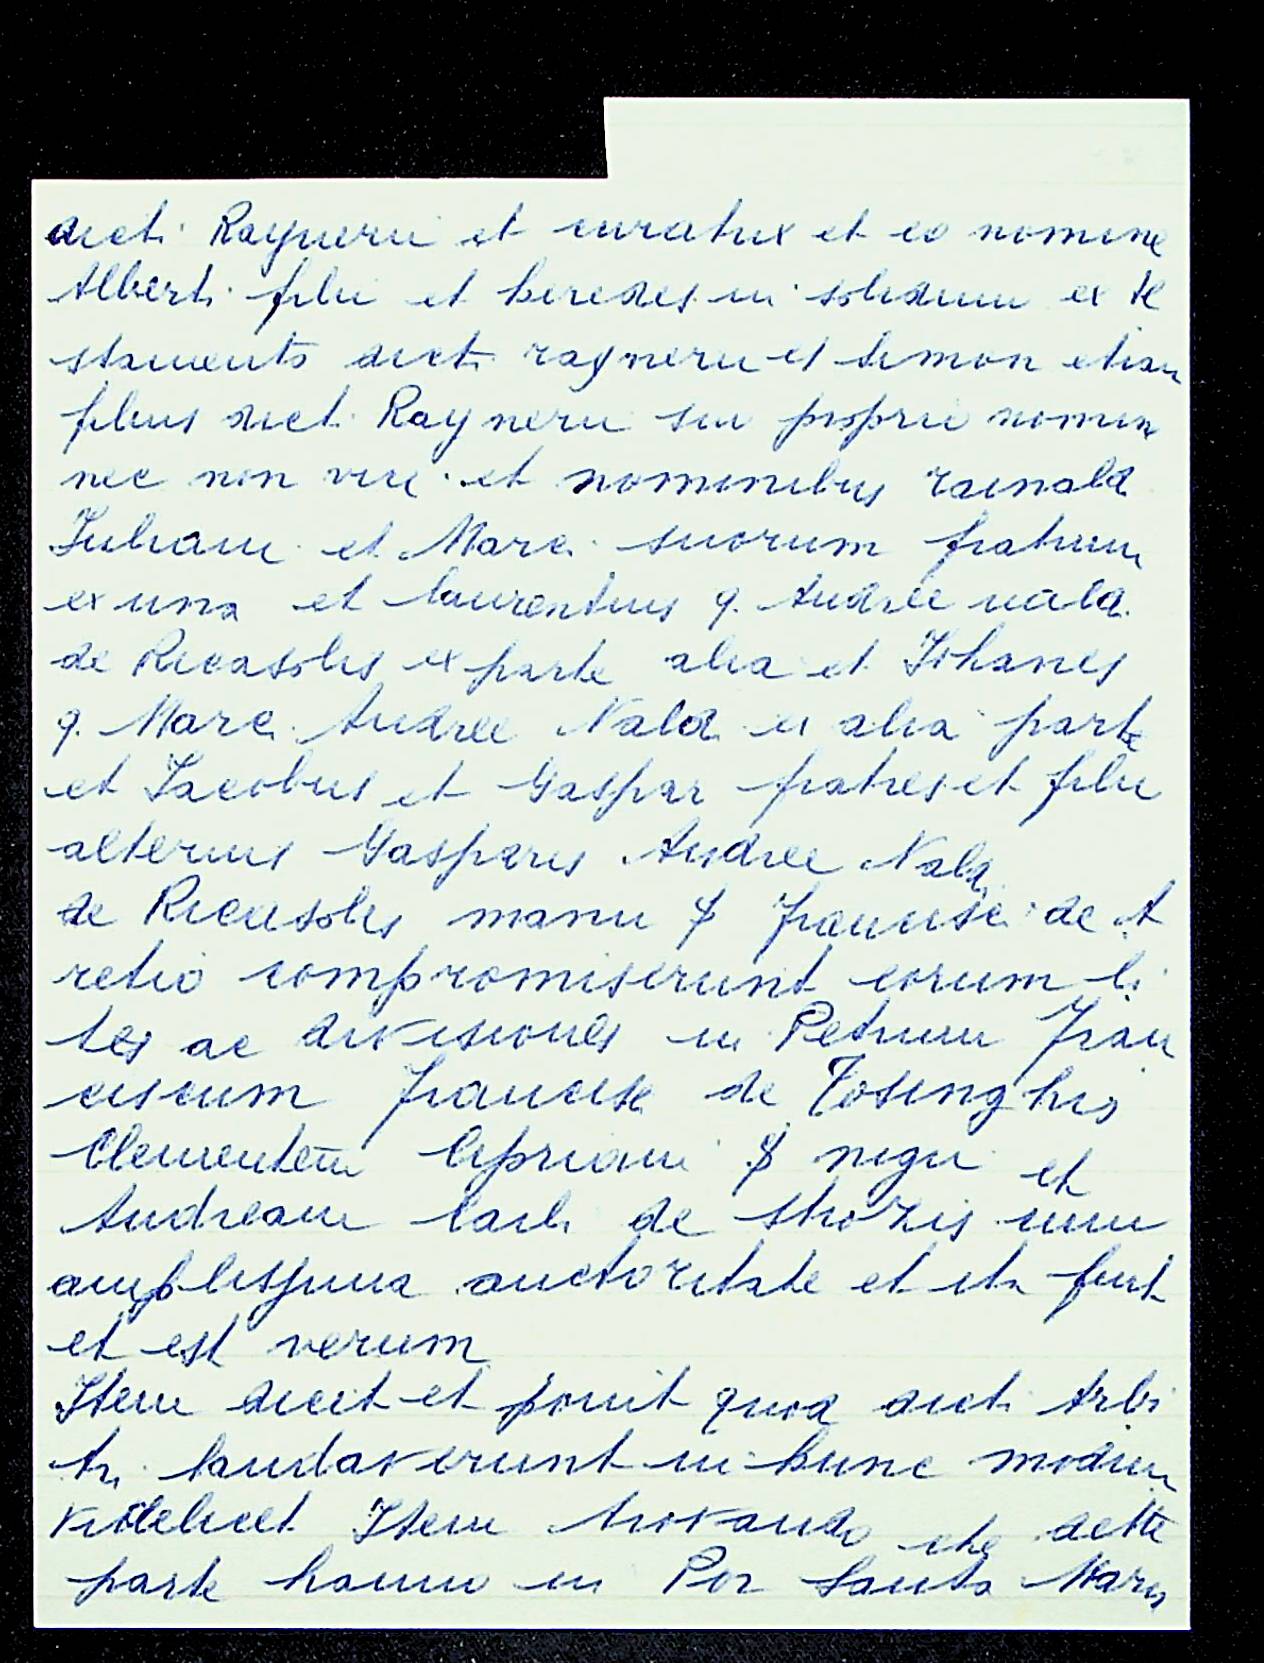 dicti Raynerii et curatrix et eo nomine
Alberti filii et heredes in solidum ex te
stamento dicti raynerii et Simon etiam
filius dicti Raynerii suo proprio nomin
nec non vice et nominibus rainald
Juliani et Marci suorum fratrum
ex una et laurentius q. Andree nald.
de Ricasolis ex parte alia et Johanes
q. Marci Andree Nald ex alia parte
et Jacobus et Gaspar fratres et filii
alterius Gasparis Andree Nald
de Ricasolis manu S Francisci de A
retio compromiserunt eorum li
tes ac divisiones in Petrum Fran
ciscum Francisci de Tosinghis
Clementem Cipriani S nigi et
Andream Carli de Strozis cum
amplissima auctoritate et ita fuit
et est verum
Item dicit et ponit quod dicti Arbi
tri laudaverunt in hunc modum
videlicet Item trovando che dette
parte hanno in Por Santa Maria